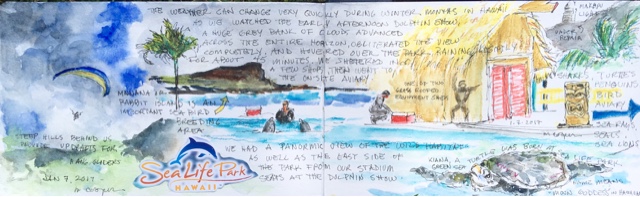 THE WEATHER CAN CHANGE VERY QUICKLY DURING WINTER MONTHS IN HAWAII
AS WE WATCHED THE EARLY AFTERNOON DOLPHIN SHOW,
A HUGE GREY BANK OF CLOUDS ADVANCED
ACROSS THE ENTIRE HORIZON, OBLITERATED THE VIEW
COMPLETELY, AND HOVERED OVER THE PARK, RAINING
FOR ABOUT 45 MINUTES. WE SHELTERED IN
A FEW SHOPS THEN WENT TO
THE ON SITE AVIARY
MANANA IS.
RABBIT ISLAND IS AN
IMPORTANT SEA BIRD
BREEDING
AREA
STEEP HILLS BEHIND US
PROVIDE UPDRAFTS FOR
HANG GLIDERS
JAN 7, 2017
Sea Life Park
HAWAII
WE HAD A PANORAMIC VIEW OF THE
AS WELL AS THE EAST SIDE OF
THE PARK FROM OUR STADIUM
SEATS AT THE DOLPHIN SHOW
ROOFED
EQUIPMENT
REPAIR
LIGHT
SHARKS
TURTLES
PENGUINS
BIRD
AVIARY
SEALS
SEA LIONS
1.7.2017
KIANA, A
GREEN SEA
WAS BORN AT
SEA LIFE PARK
MOON GODDESS IN HAWAIIAN